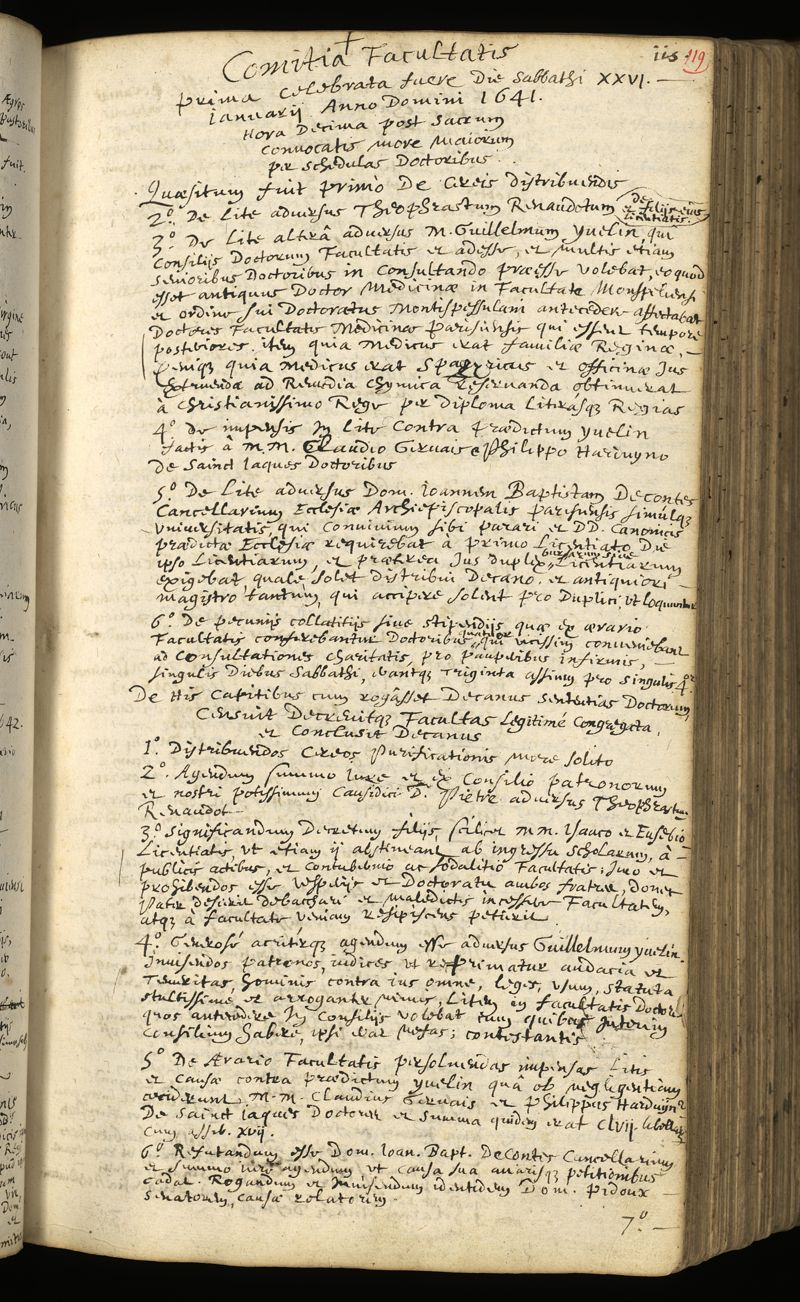 Comitia Facultatis
iis 119
prima celebrata fuere Die Sabbathi XXVI.
Ianuarij Anno Domini 1641.
Hora Decima post Sacrum
Convocatis more Maiorum
per Schedulas Doctoribus.
Quæsitum fuit primò De Cereis distribuendis
2º. De Lite adversus Theophrastum Renaudotum de filijs eius Licentiatis.
3º. De Lite alterâ adversus M. Guillelmum yvelin qui
Consilijs Doctorum Facultatis et adesse, et multis etiam
Senioribus Doctoribus in Consultando præesse volebat, eo quod
esset antiquus Doctor Medicinæ in Facultate Monspeliensi
et ordine sui Doctoratus Montispessulani antecedere affectabat
Doctores Facultatis Medicinæ Parisiensis qui essent tempore
posteriores. item quia Medicus erat familiæ Reginæ,
Deniqz quia Medicus erat Spagyricus et officinæ Jus
ad Remedia Chymica obtinuerat
à Christianissimo Rege per diploma Literasqz Regias
4º. de impensis In Lite Contra Prædictum yvelin
factis à M.M. Claudio Gervais & Philippo Harduyno
De Sainct Iaques Doctoribus
5º. De Lite adversus Dom. Ioannem Baptistam De contes
Cancellarium Ecclesiæ Archiepiscopalis Parisiensis simulqz
Vniversitatis, qui Convivium sibi parari et DD. Canonicis
prædictæ Ecclesiæ requirebat à Primo Licentiato Die
ipso Licentiarum, et præterea Jus duplex bursarum sive Licentiarum
exigebat, quale solet distribui Decano, et antiquiori
magistro tantum, qui accipere solent pro Duplici, ut loquuntur
6º. De pecunijs collatitijs sive stipendijs quæ ex ærario
Facultatis conferebantur Doctoribus quatuor qui vicissim conveniebant
ad Consultationes charitatis, pro pauperibus infirmis,
singulis Diebus Sabbathi, erantqz triginta assium pro singulis 4or
De His Capitibus cum rogâsset Decanus sententias Doctorum,
Censuit Decrevitqz Facultas Legitimé Congregata,
et Conclusit Decanus
1º. Distribuendos Cereos Purificationis more solito
2º. Agendum summo Iure et ex Consilio patronorum
et nostri potissimum Causidici D. Pietre adversus Theophrastum
Renaudot
3º. Significandum Decretum filijs, scilicet M.M. Isaaco et Eusebio
Licentiatis, ut etiam ij abstineant ab ingressu Scholarum, à
publicis actibus, et Contubernio ac sodalitio Facultatis; Imo et
prohibendos esse Vesperijs et Doctoratu ambos fratres, donec
Pater desierit debacchari et maledictis incessere Facultatem,
atqz à facultate veniam resipiscens petierit
4º. Generosé acritérqz agendum esse adversus Guillelmum yvelin.
Invisendos patronos, iudices ut reprimatur audacia et
Temeritas, hominis contra ius omne, leges, usum, statuta
stultissime, et arroganter nimis, Litem in facultatis Doctores
quos antecedere In Consilijs volebat cum quibus Interim
Consilium habere, ipsi erat Nefas; contestantis
5º. De Ærario Facultatis persolvendas impensas Litis
et causæ contra prædictum yvelin quâ ob negligentiam
ceciderunt M.M. Claudius Gervais et Philippus Harduyn
De Sainct Iaques Doctores et summa quidem erat clvij libellarum
cum assib. xvij.
6º. Refutandum esse Dom. Ioan. Bapt. De Contes Cancellarium
et summo iure agendum ut causa sua avarisqz petitionibus
cadat. Rogandum et Invisendum identidem Dom. Pidoux
Senatorem, causæ relatorem.
7º.